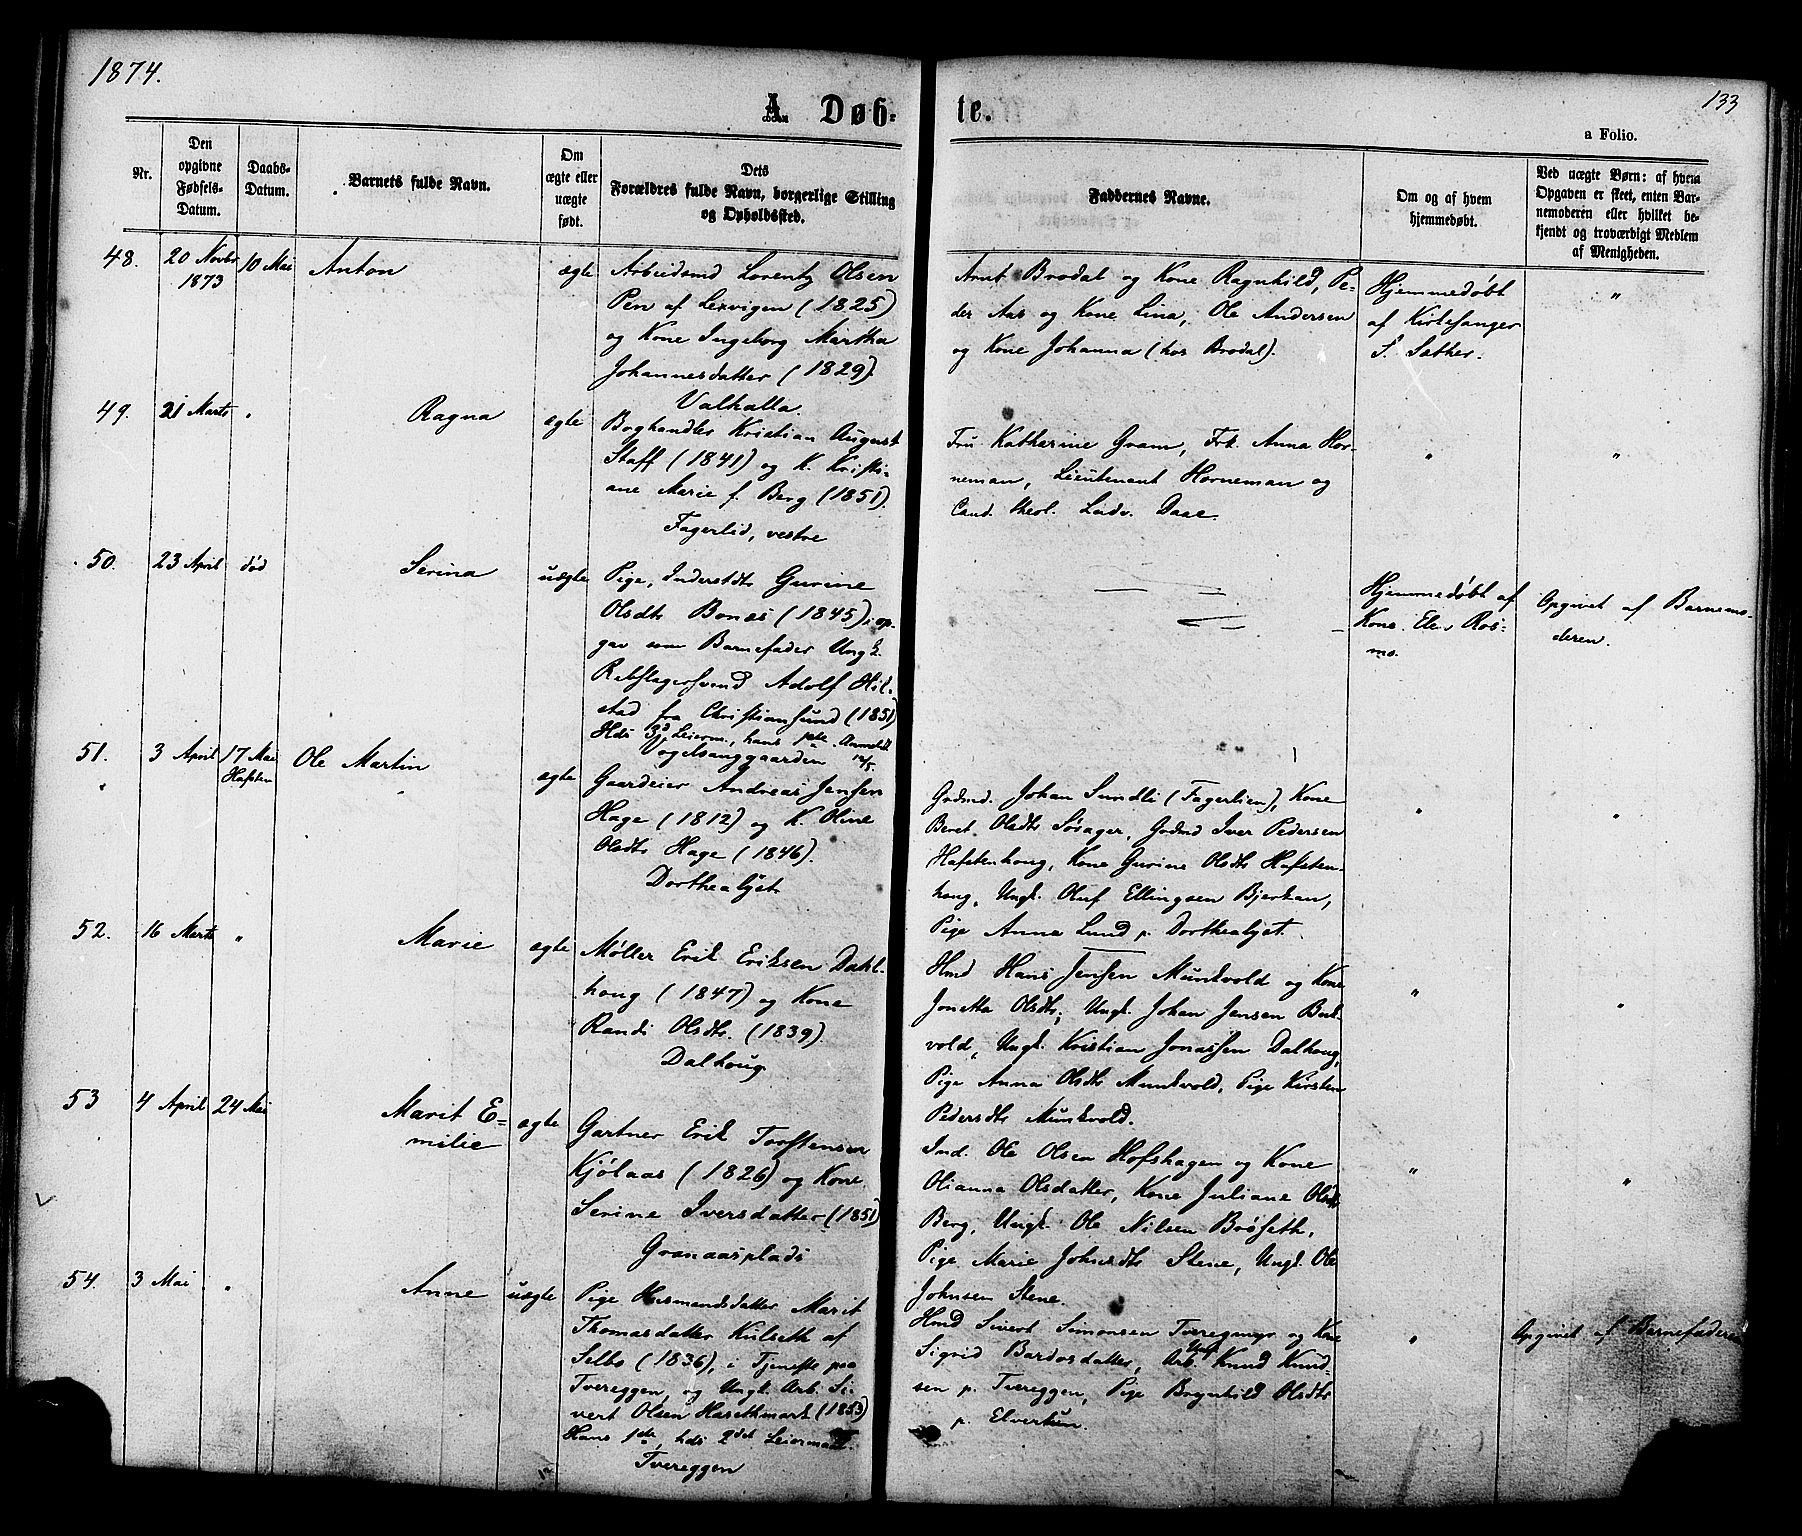 1874.
133
A. Døb-
te.
a Folio.
Nr.
Den opgivne Fødsels-Datum.
Daabs-Datum.
Barnets fulde Navn.
Om ægte eller uægte født.
Dets Forældres fulde Navn, borgerlige Stilling og Opholdssted.
Faddernes Navne.
Om og af hvem hjemmedøbt.
Ved uægte Børn: af hvem Opgaven er skeet, enten Barnemoderen eller hvilket bekjendt og troværdigt Medlem af Menigheden.
48. 20 Novbr 1873 10 Mai Anton ægte
Arbeidsmd Lorentz Olsen
Pen af Lexvigen (1825)
og Kone Ingeborg Martha
Johannesdatter (1829).
Valhalla.
Arnt Brodal og Kone Ragnhild, Pe-
der Aas og Kone Lina, Ole Andersen
og Kone Johanna (hos Brodal).
Hjemmedøbt
af Kirkesanger
S. Sæther.
"
49. 21 Marts " Ragna ægte
Boghandler Kristian August
Staff (1841) og K. Kristi-
ane Marie f. Berg (1851).
Fagerlid, vestre
Fru Katharine Gram, Frk. Anna Hor-
neman, Lieutenant Horneman og
Cand. theol. Ludv. Daae.
"
"
50. 23 April død Serina uægte
Pige, Inderstdtr Gurine
Olsdtr Bonæs (1845), op-
gav som Barnefader Ungk.
Rebslagersvend Adolf Hil-
stad fra Christiansund (1851)
Hds 3d Leierm., hans 1ste. Anmeldt
Vogelsanggaarden 14/5.
Hjemmedøbt af
Kone Elen Ros-
mo.
Opgivet af Barnemo-
deren.
51. 3 April 17 Mai Hafsten Ole Martin ægte
Gaardeier Andreas Jensen
Hage (1812) og K. Oline
Olsdtr Hage (1846).
Dorthealyst
Grdmd. Johan Sundli (Fagerlien), Kone
Beret Olsdtr Søiager, Grdmd Iver Pedersen
Hafstenhoug, Kone Gurine Olsdtr Hafsten-
houg, Ungk. Oluf Ellingsen Bjerkan,
Pige Anna Lund p. Dorthealyst.
"
"
52. 16 Marts " Marie ægte
Møller Erik Eriksen Dahl-
houg (1847) og Kone
Randi Olsdtr. (1839).
Dalhoug
Hmd Hans Jensen Munkvold og Kone
Jonetta Olsdtr, Ungk. Johan Jensen Buk-
vold, Ungk. Kristian Jonassen Dalhoug,
Pige Anna Olsdtr Munkvold, Pige Kirsten
Pedersdtr Munkvold.
"
"
53 4 April 24 Mai Marit E-
milie ægte
Gartner Erik Torstensen
Kjølaas (1826) og Kone
Serine Iversdatter (1851)
Granaasplads
Ind. Ole Olsen Hofshagen og Kone
Olianna Olsdatter, Kone Juliane Olsdtr
Berg, Ungk. Ole Nilsen Brøseth,
Pige Marie Johnsdtr Stene, Ungk. Ole
Johnsen Stene.
"
"
54. 3 Mai " Anne uægte
Pige Husmandsdatter Marit
Thomasdatter Kulseth af
Selbo (1836), i Tjeneste paa
Tvereggen, og Ungk. Arb. Si-
vert Olsen Hasethmark (1853)
Hans 1ste, hds 2det Leiermaal.
Tvereggen
Hmd Sivert Simonsen Tveregmyr og Kone
Sigrid Bardosdatter, Arb. Ungk. Knud Knud-
sen p. Tvereggen, Pige Brynhild Olsdtr
p. Elvertun.
"
Opgivet af Barnefaderen